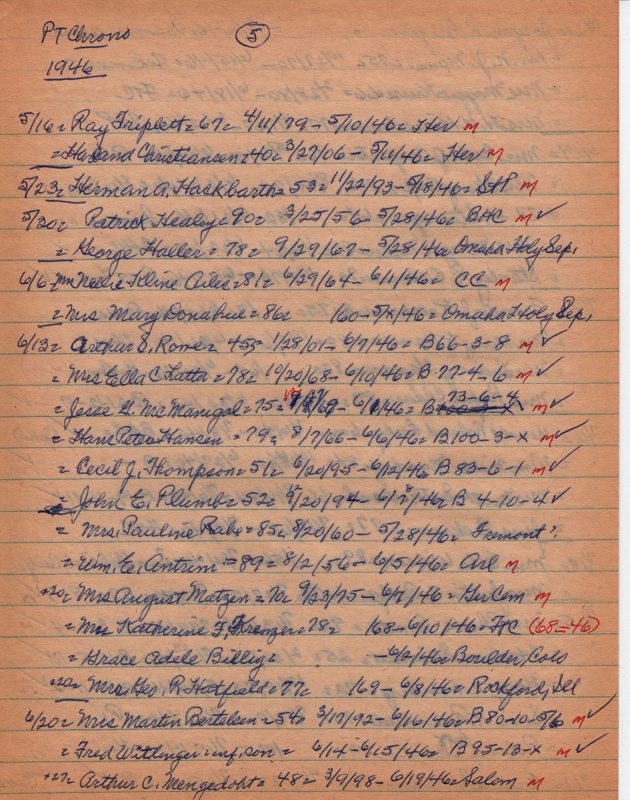 PT Chrono (5)
1946
5/16 = Ray Triplett = 67 = 4/11/79 - 5/10/46 = Her m
= Harland Christiansen = 40 = 3/27/06 - 5/11/46 = Her m
5/23 = Herman A. Hackbarth = 53 = 11/22/93 - 5/18/46 = StP m
5/30 = Patrick Healey = 90 = 3/25/56 - 5/28/46 = BHC m ✓
= George Haller = 78 = 9/29/67 - 5/28/46 = Omaha Holy Sep.
6/6 = Mrs Nellie Kline = 81 = 6/29/64 - 6/1/46 = CC m
= Mrs Mary Donahue = 86 = 160 - 5/x/46 = Omaha Holy Sep.
6/13 = Arthur S. Rowe = 45 = 1/28/01 - 6/7/46 = B 66-3-8 m ✓
= Mrs Ella C. Latta = 78 = 10/20/68 - 6/10/46 = B 77-4-6 m ✓
= Jesse H. McManigal = 75 = - 6/1/46 = B 73-6-4 m ✓
= Hans Peter Hansen = 79 = 8/7/66 - 6/6/46 = B 100-3-x m ✓
= Cecil J. Thompson = 51 = 6/20/95 - 6/12/46 = B 83-6-1 m ✓
= John E. Plumb = 52 = 9/20/94 - 6/8/46 = B 4-10-4 ✓
= Mrs. Pauline Rabe = 85 = 8/20/60 - 5/28/46 = Fremont ?
= Wm. E. Antrim = 89 = 8/2/56 - 6/5/46 = Arl m
+20 = Mrs August Matzen = 70 = 9/23/75 - 6/7/46 = GerCem m
= Mrs Katherine F. Frenzen = 78 = 168 - 6/10/46 = FtC (68-46)
= Grace Adele Billig = - 6/2/46 = Boulder, Colo
+20 = Mrs. Geo. R Hatfield = 77 = 169 - 6/8/46 = Rockford, Ill
6/20 = Mrs Martin Bertelsen = 54 = 3/17/92 - 6/16/46 = B 80-10-5/6 m ✓
= Fred Wittlinger inf. son = 6/14 - 6/15/46 = B 95-13-x m ✓
+27 = Arthur C. Mengedoht = 48 = 3/9/98 - 6/19/46 = Salem m